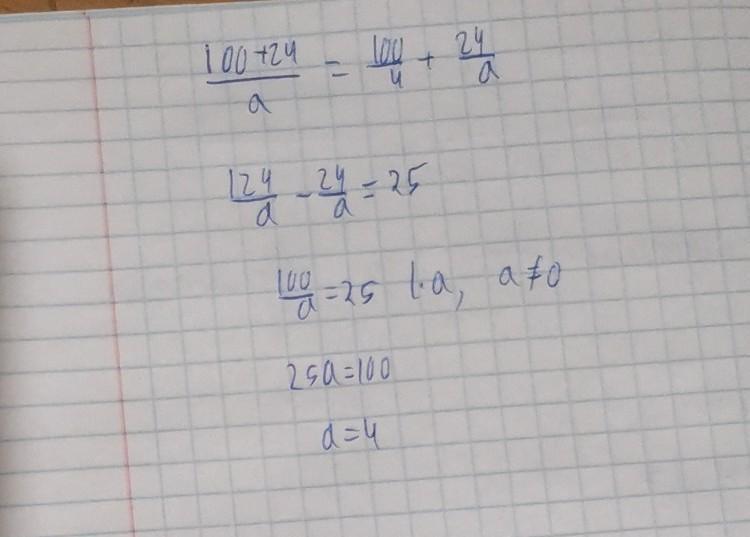 (100+24)/a = 100/4 + 24/a
124/a - 24/a = 25
100/a = 25 |·a, a≠0
25a=100
a=4